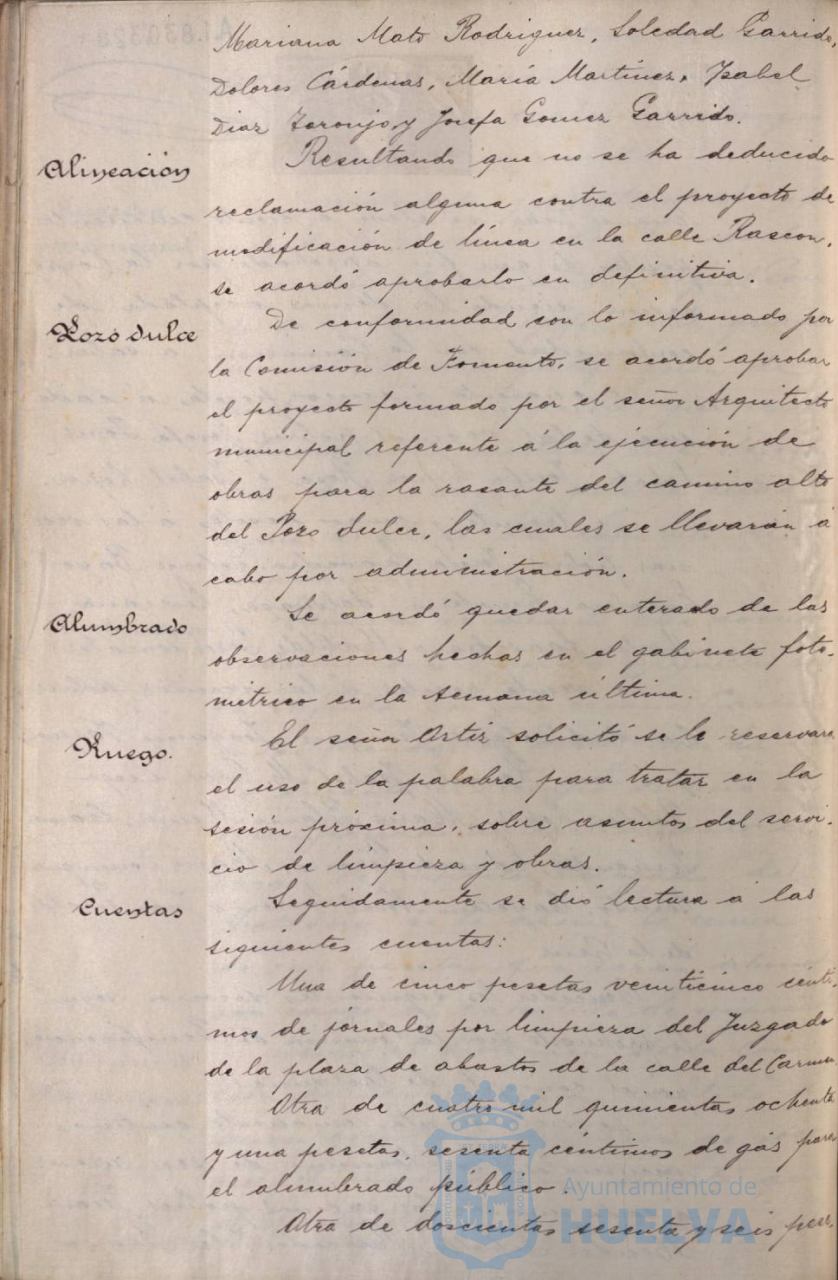 Mariana Mato Rodriguez, Soledad Garrido,
Dolores Cárdenas, María Martínez, Isabel
Diaz Toronjo, y Josefa Gomez Garrido.
Alineación
Resultando que no se ha deducido
reclamación alguna contra el proyecto de
modificación de línea en la calle Rascon,
se acordó aprobarlo en definitiva.
Pozo dulce
De conformidad con lo informado por
la Comisión de Fomento, se acordó aprobar
el proyecto formado por el señor Arquitecto
municipal referente á la ejecución de
obras para la rasante del camino alto
del Pozo dulce, las cuales se llevarán á
cabo por administración.
Alumbrado
Se acordó quedar enterado de las
observaciones hechas en el gabinete foto-
métrico en la semana última.
Ruego.
El señor Ortiz solicitó se le reservara
el uso de la palabra para tratar en la
sesión próxima, sobre asuntos del servi-
cio de limpieza y obras.
Cuentas
Seguidamente se dió lectura á las
siguientes cuentas:
Una de cinco pesetas veinticinco cénti-
mos de jornales por limpieza del Juzgado
de la plaza de abastos de la calle del Carmen
Otra de cuatro mil quinientas ochenta
y una pesetas, sesenta céntimos de gás para
el alumbrado público.
Otra de doscientas sesenta y seis pese-
Ayuntamiento de
HUELVA